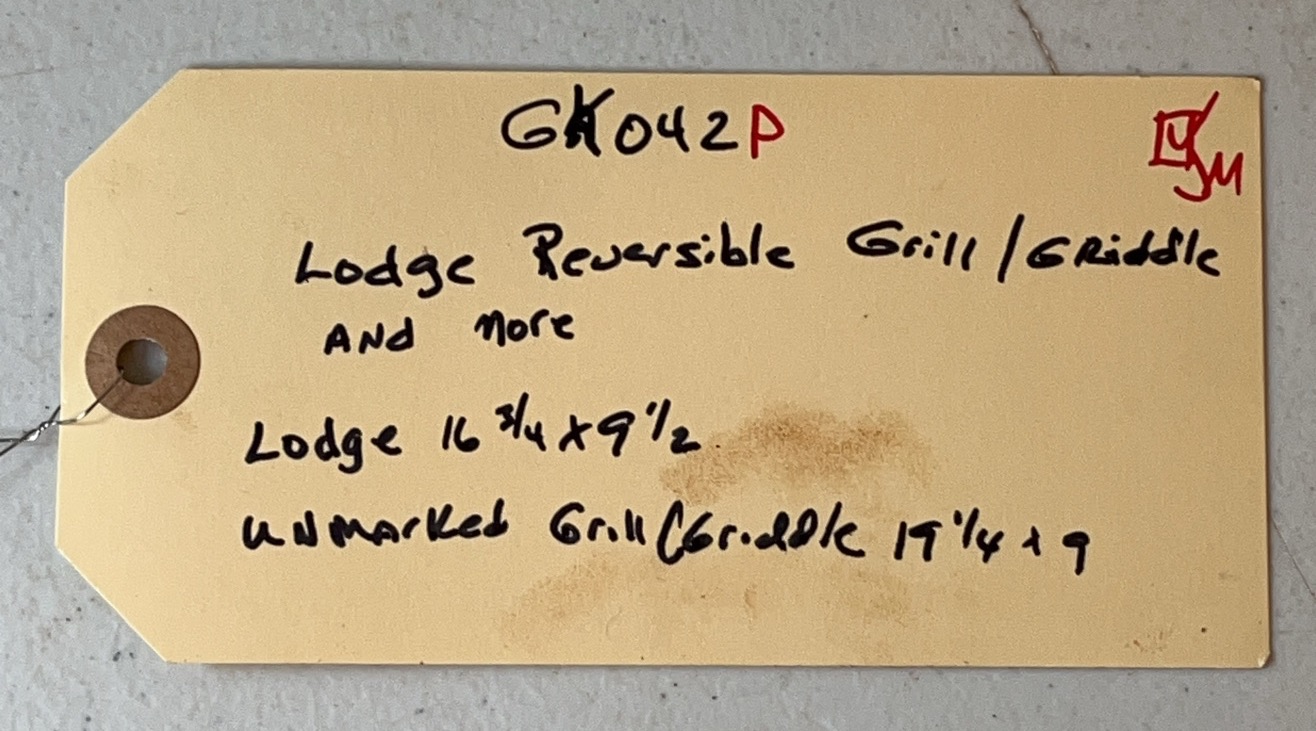 GK042P
Lodge Reversible Grill/GRiddle
ANd more
Lodge 16 3/4 x 9 1/2
UNmarked Grill/Griddle 19 1/4 x 9